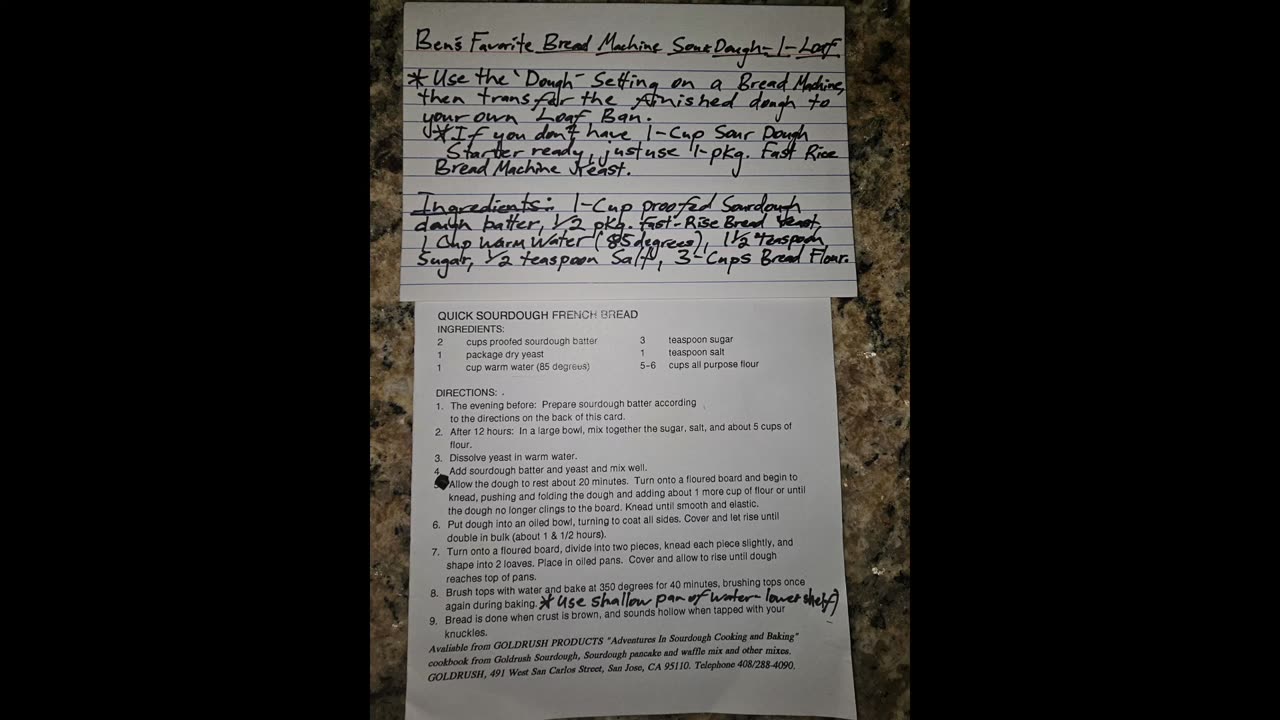 Ben's Favorite Bread Machine Sour Dough- 1-Loaf
* Use the "Dough" Setting on a Bread Machine,
then transfer the finished dough to
your own Loaf Ban.
*If you don't have 1-Cup Sour Dough
Starter ready, just use 1-pkg. Fast Rice
Bread Machine Yeast.
Ingredients: 1-Cup proofed Sourdough
dough batter, 1/2 pkg. Fast-Rise Bread Yeast,
1 Cup Warm Water (85 degrees), 1 1/2 teaspoon
Sugar, 1/2 teaspoon Salt, 3-Cups Bread Flour.
QUICK SOURDOUGH FRENCH BREAD
INGREDIENTS:
2 cups proofed sourdough batter 3 teaspoon sugar
1 package dry yeast 1 teaspoon salt
1 cup warm water (85 degrees) 5-6 cups all purpose flour
DIRECTIONS:
1. The evening before: Prepare sourdough batter according
to the directions on the back of this card.
2. After 12 hours: In a large bowl, mix together the sugar, salt, and about 5 cups of
flour.
3. Dissolve yeast in warm water.
4. Add sourdough batter and yeast and mix well.
5. Allow the dough to rest about 20 minutes. Turn onto a floured board and begin to
knead, pushing and folding the dough and adding about 1 more cup of flour or until
the dough no longer clings to the board. Knead until smooth and elastic.
6. Put dough into an oiled bowl, turning to coat all sides. Cover and let rise until
double in bulk (about 1 & 1/2 hours).
7. Turn onto a floured board, divide into two pieces, knead each piece slightly, and
shape into 2 loaves. Place in oiled pans. Cover and allow to rise until dough
reaches top of pans.
8. Brush tops with water and bake at 350 degrees for 40 minutes, brushing tops once
again during baking. *Use shallow pan of water- lower shelf)
9. Bread is done when crust is brown, and sounds hollow when tapped with your
knuckles.
Avaliable from GOLDRUSH PRODUCTS "Adventures In Sourdough Cooking and Baking"
cookbook from Goldrush Sourdough, Sourdough pancake and waffle mix and other mixes.
GOLDRUSH, 491 West San Carlos Street, San Jose, CA 95110. Telephone 408/288-4090.